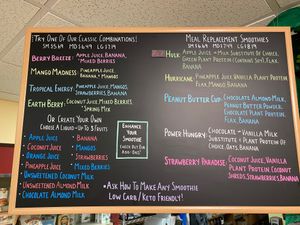 ¡Try One Of Our Classic Combinations!
SM $5.69 MD $6.49 LG $7.19
Berry Breeze: Apple Juice, Banana,
*Mixed Berries
Mango Madness: Pineapple Juice
Banana, Mangos
Tropical Energy: Pineapple Juice, Mangos,
Strawberries, Banana
Earth Berry: Coconut Juice, Mixed Berries
Or Create Your Own
Choose A Liquid - Up To 3 Fruits
• Apple Juice
• Coconut Juice
• Orange Juice
• Pineapple Juice
• Unsweetened Coconut Milk
• Unsweetened Almond Milk
• Chocolate Almond Milk
• Banana
• Mangos
• Strawberries
• Mixed Berries
Enhance
Your
Smoothie
Check Out Our
Add-Ons!
Meal Replacement Smoothies
SM $6.69 MD $7.49 LG $8.19
Hulk: Apple Juice or Milk Substitute Of Choice,
Green Plant Protein (Contains Soy), Flax,
Banana
Hurricane: Pineapple Juice, Vanilla Plant Protein
Flax, Mango, Banana
Peanut Butter Cup: Chocolate Almond Milk,
Peanut Butter Powder,
Chocolate Plant Protein,
Flax, Banana
Power Hungry: Chocolate or Vanilla Milk
Substitute, Plant Protein Of
Choice, Oats, Banana
Strawberry Paradise: Coconut Juice, Vanilla
Plant Protein, Coconut
Shreds, Strawberries, Banana
*Ask How To Make Any Smoothie
Low Carb / Keto Friendly!